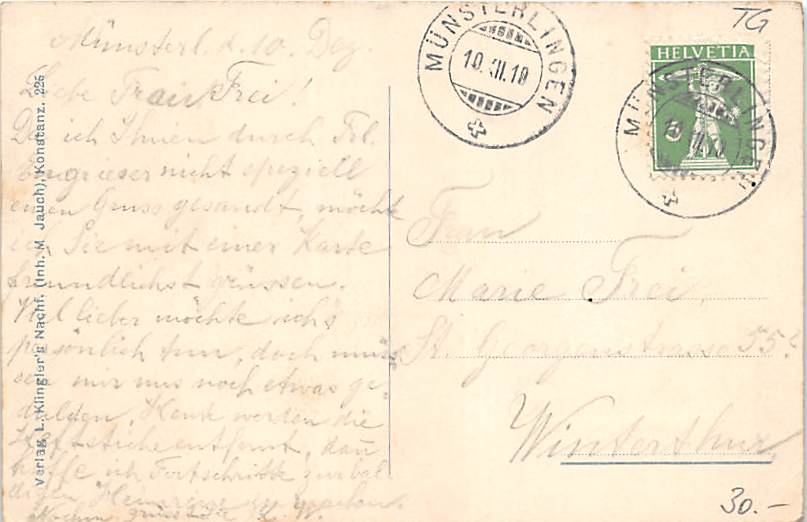 Münsterl. d. 10. Dez.
Liebe Frau Frei!
Da ich Ihnen durch Frl.
nicht speziell
einen Gruss gesandt, möchte
ich Sie mit einer Karte
freundlichst grüssen.
Viel lieber möchte ich's
persönlich tun, doch müs
sen wir uns noch etwas ge-
dulden. Heute werden die
entfernt, dan
hoffe ich Fortschritte zur bal-
digen Heimreise zu machen.
Verlag L. Klingler's Nachf. (Inh. M. Jauch), Konstanz. 226
MÜNSTERLINGEN
10.XII.10
TG
HELVETIA
5
MÜNSTERLINGEN
10.XII.10
Frau
Marie Frei,
St. Georgenstrasse 55
Winterthur
30.-